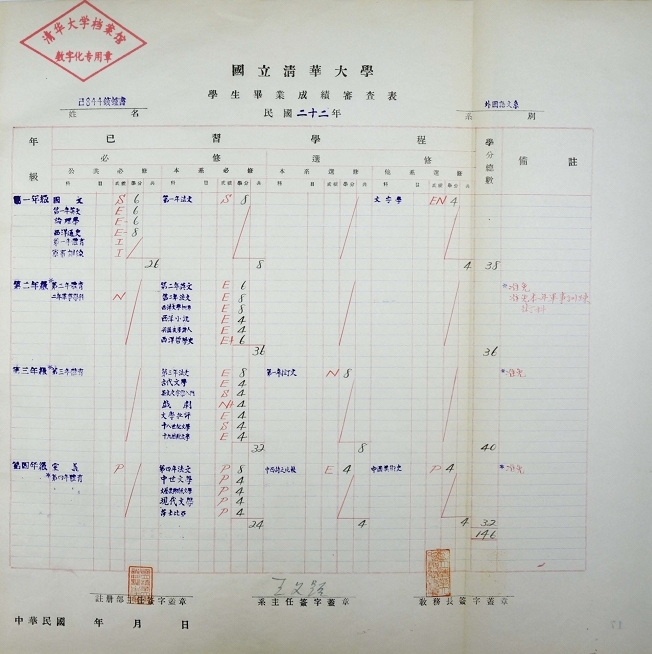 清华大学档案馆
数字化专用章
國立清華大學
學生畢業成績審查表
民國二十二年
姓名
外國語文系
系別
年級 已習學程 學分總數 備註
必修 選修
公共必修 本系必修 本系選修 他系選修
科目 成績 學分 共 科目 成績 學分 共 科目 成績 學分 共 科目 成績 學分 共
第一年級 國文 S 6 第一年法文 S 8 文字學 EN 4
第一年英文 E- 6
倫理學 E- 6
西洋通史 E- 8
第一年體育 I
軍事訓練 I
26 8 4 38
第二年級 *第二年體育 第二年英文 E 6 *准免
二年軍事學科 N 第二年法文 E 8
E 8
西洋小説 E 4
E 4
西洋哲學史 E+ 6
36 36
第三年級 *第三年體育 第三年法文 E 8 N 8 *准免
古代文學 E 4
S 4
戲劇 N+ 4
文學批評 E 4
十八世紀文學 S 4
十九世紀文學 E 4
32 8 40
第四年級 黨義 P 第四年法文 P 8 E 4 中國美術史 P 4 *准免
*第四年體育 中世文學 P 4
P 4
現代文學 P 4
莎士比亞 P 4
24 4 4 32
146
註册部主任簽字蓋章 系主任簽字蓋章 教務長簽字蓋章
中華民國 年 月 日